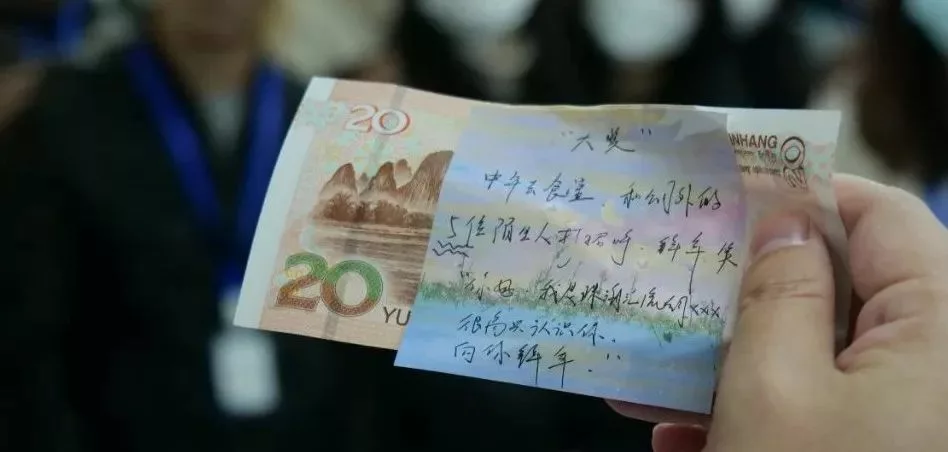 20
20
YU
NHANG
20
"大奖"
中午去食堂,和公司外的
5位陌生人打招呼,拜年笑
"你好,我是珠海汇流公司xxx,
很高兴认识你.
向你拜年."